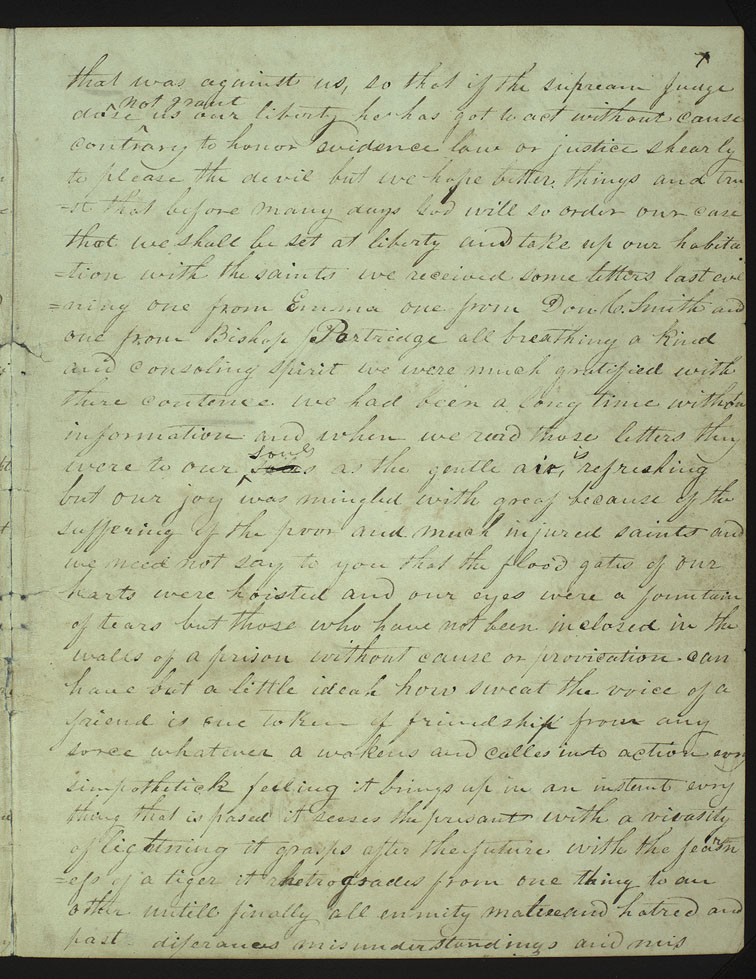 7
that was against us, so that if the supream Judge
not grant
dose us our liberty he has got to act without cause
contrary to honor evidence law or justice shearly
to please the devil but we hope better things and tru
=st that before many days God will so order our case
that we shall be set at liberty and take up our habita
=tion with the saints we received some letters last eve
=ning one from Emma one from Don C. Smith and
one from Bishop Partridge all breathing a kind
and consoling spirit we were much gratified with
there contence we had been a long time without
information and when we read those letters they
souls
were to our as the gentle air, is refreshing
but our joy was mingled with greaf because of the
suffering of the poor and much injured saints and
we need not say to you that the flood gates of our
harts were hoisted and our eyes were a fountain
of tears but those who have not been inclosed in the
walls of a prison without cause or provication can
have but a little ideah how sweat the voice of a
friend is one token of friendship from any
sorce whatever awakens and calles into action evry
simpothetick feeling it brings up in an instant evry
thing that is pased it seases the presant with a vivasity
of lightning it grasps after the future with the fearsn
=ess of a tiger it rhetrogrades from one thing to an
other untill finally all enmity malice and hatred and
past diferances misunderstandings and mis